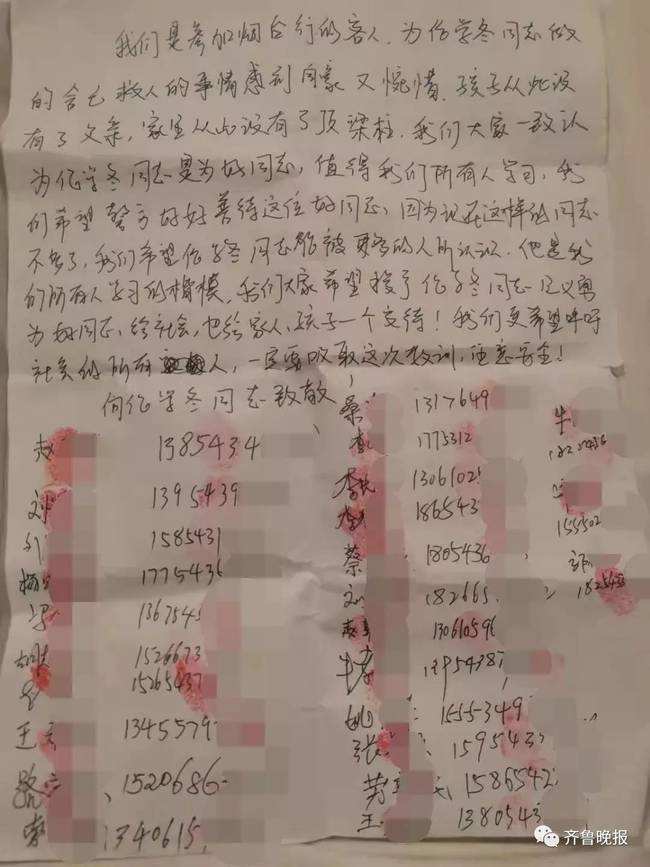 我们是参加烟台行的客人，为仇学冬同志做
的舍己救人的事情感到自豪又惋惜，孩子从此没
有了父亲，家里从此没有了顶梁柱，我们大家一致认
为仇学冬同志是为好同志，值得我们所有人学习，我
们希望警方好好善待这位好同志，因为现在这样的同志
不多了，我们希望仇学冬同志能被更多的人所认识，他是我
们所有人学习的楷模，我们大家希望授予仇学冬同志见义勇
为好同志，给社会，也给家人、孩子一个交待！我们更希望呼吁
社会的所有人，一定要吸取这次教训，注意安全！
向仇学冬同志致敬
赵 1385434
刘 1395439
1585431
杨 1775436
136754
1526673
15265437
王 1345579
路 1520686
1340615
桑 1317649
李 1775312
李 1306102
186543
蔡 1805436
刘 182665
赵 13061059
牛 1395438
姚 1555349
张 159543
1586542
王 138054
牛
155502
182543
齐鲁晚报